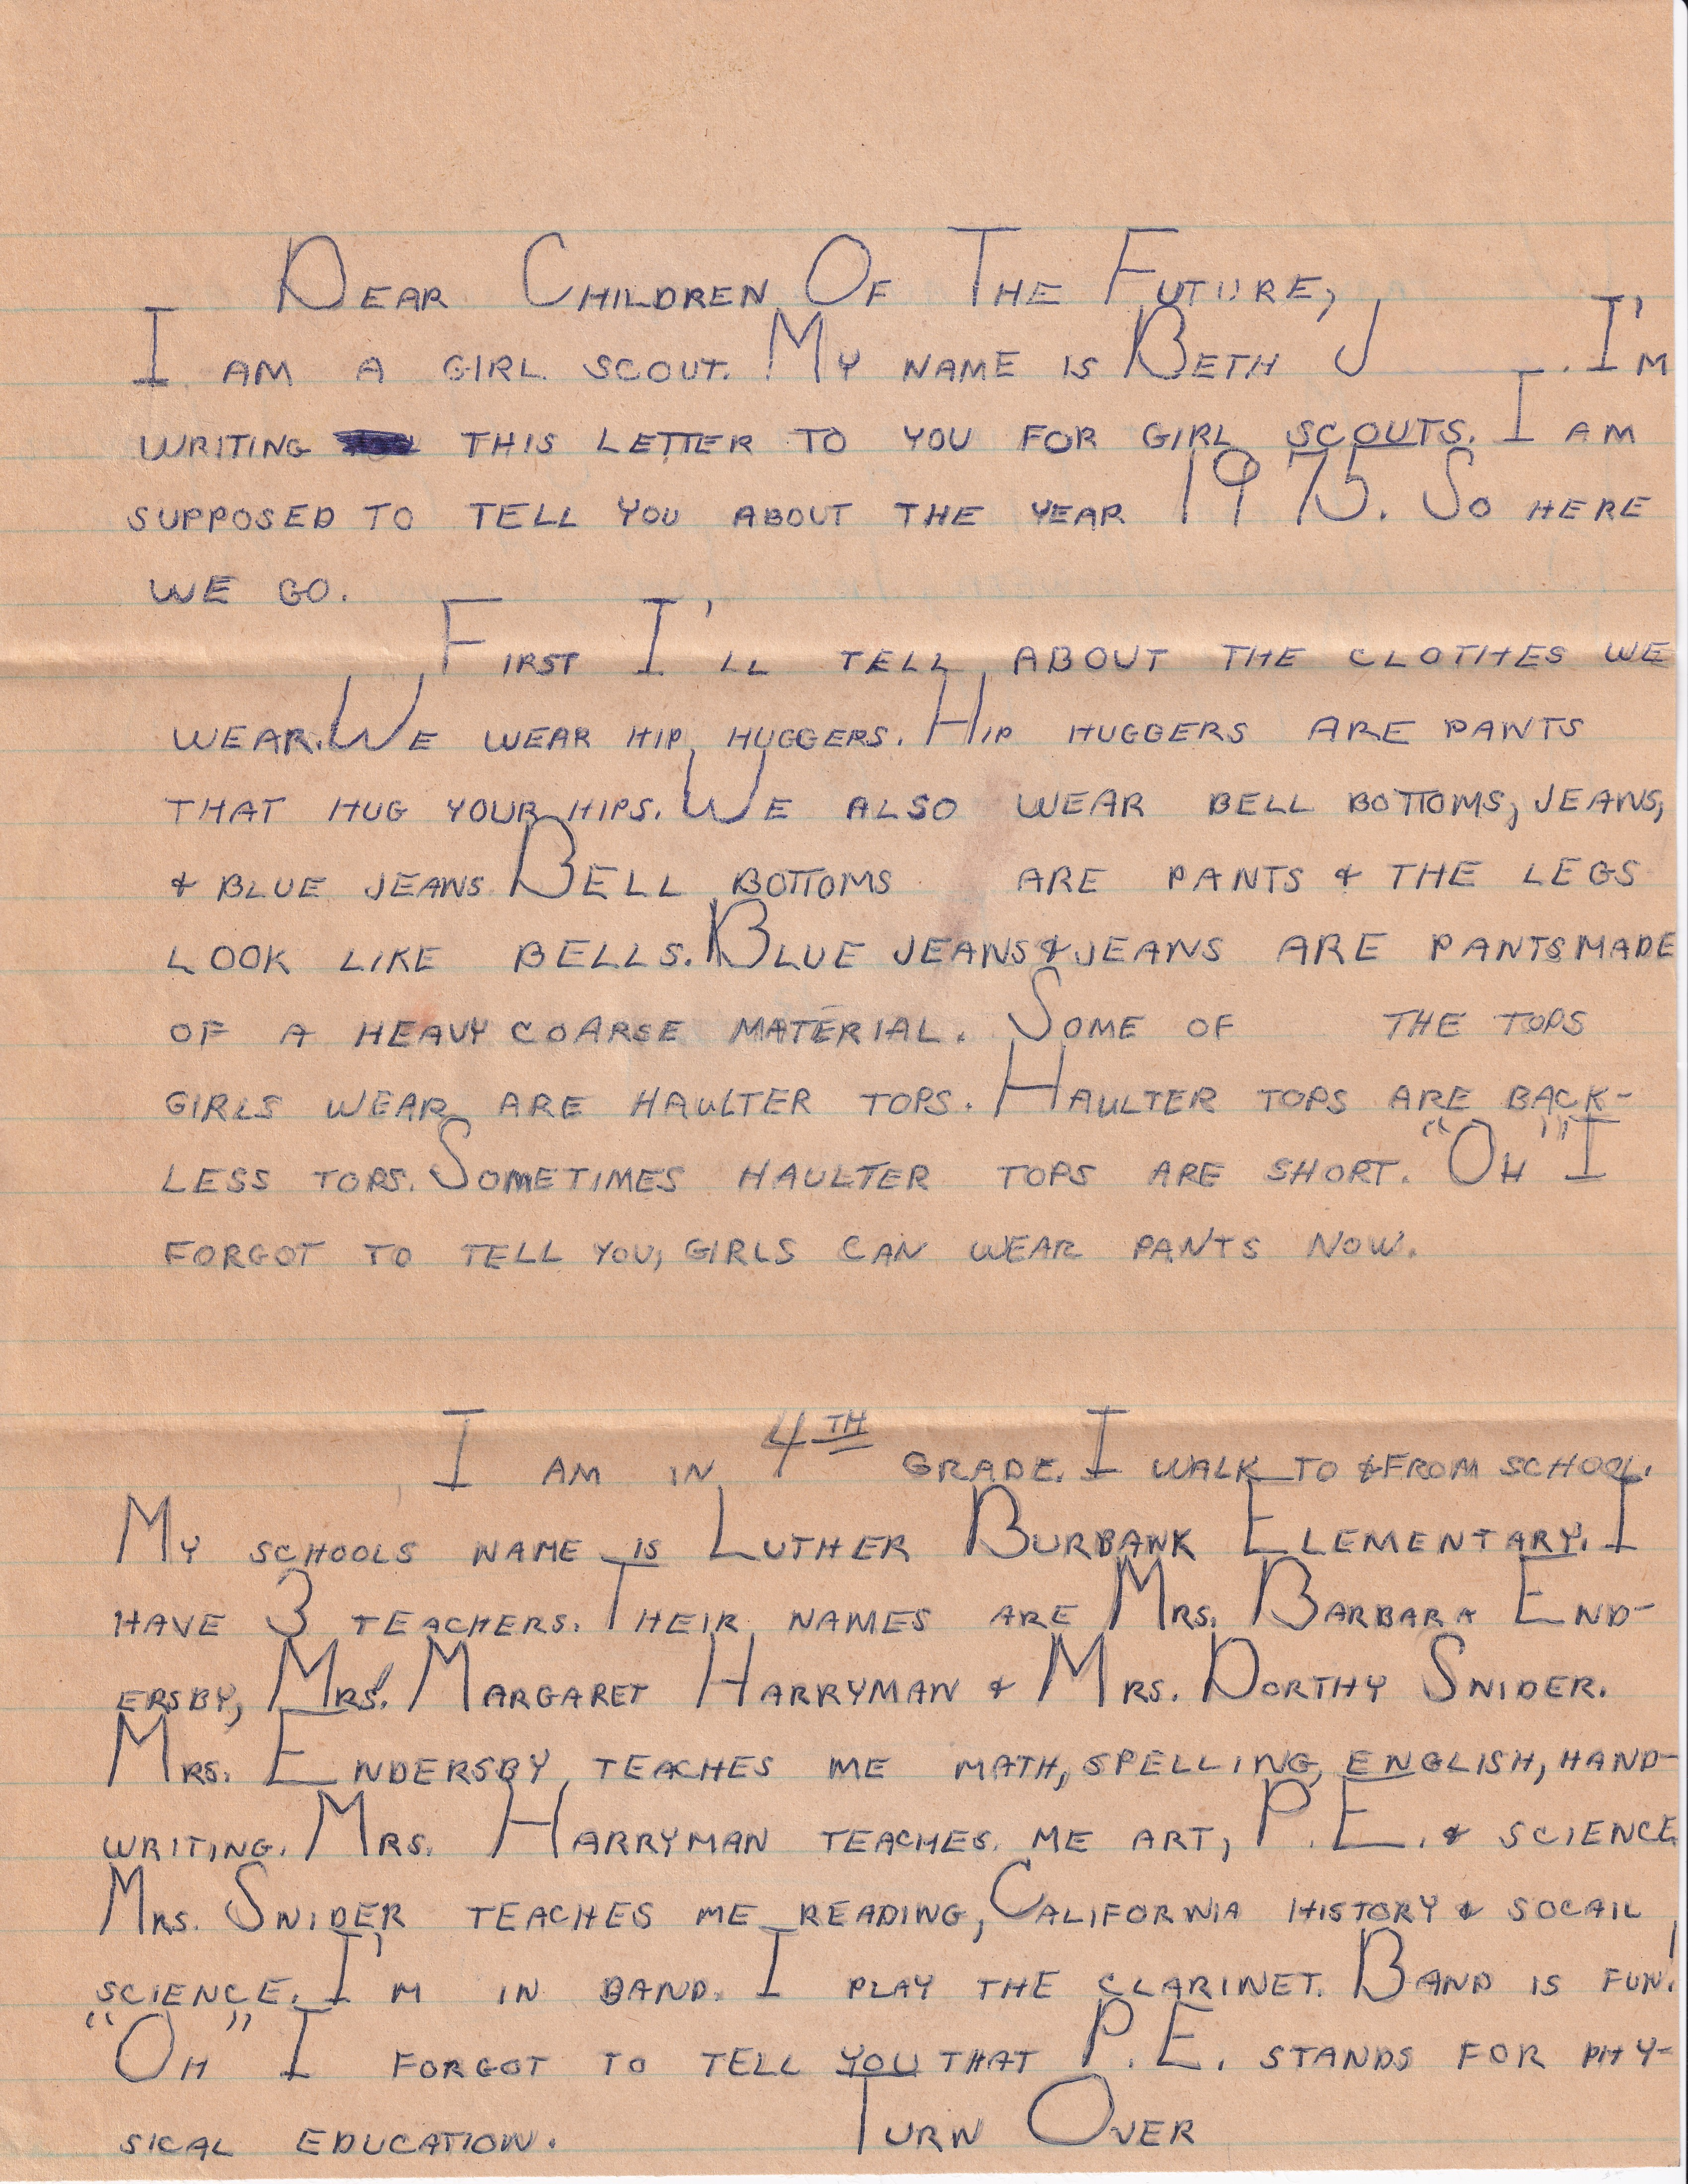 Dear Children Of The Future,
I am a girl scout. My name is Beth J______. I'm
writing this letter to you for girl scouts. I am
supposed to tell you about the year 1975. So here
we go.
First I'll tell about the clothes we
wear. We wear hip huggers. Hip huggers are pants
that hug your hips. We also wear bell bottoms, jeans,
& blue jeans. Bell bottoms are pants & the legs
look like bells. Blue jeans & jeans are pants made
of a heavy coarse material. Some of the tops
girls wear are haulter tops. Haulter tops are back-
less tops. Sometimes haulter tops are short. "Oh" I
forgot to tell you, girls can wear pants now.
I am in 4th grade. I walk to & from school.
My schools name is Luther Burbank Elementary. I
have 3 teachers. Their names are Mrs. Barbara End-
ersby, Mrs. Margaret Harryman & Mrs. Dorthy Snider.
Mrs. Endersby teaches me math, spelling, english, hand-
writing. Mrs. Harryman teaches me art, P.E. & science
Mrs. Snider teaches me reading, California history & socail
science. I'm in band. I play the clarinet. Band is fun!
"Oh" I forgot to tell you that P.E. stands for phy-
sical education. Turn Over